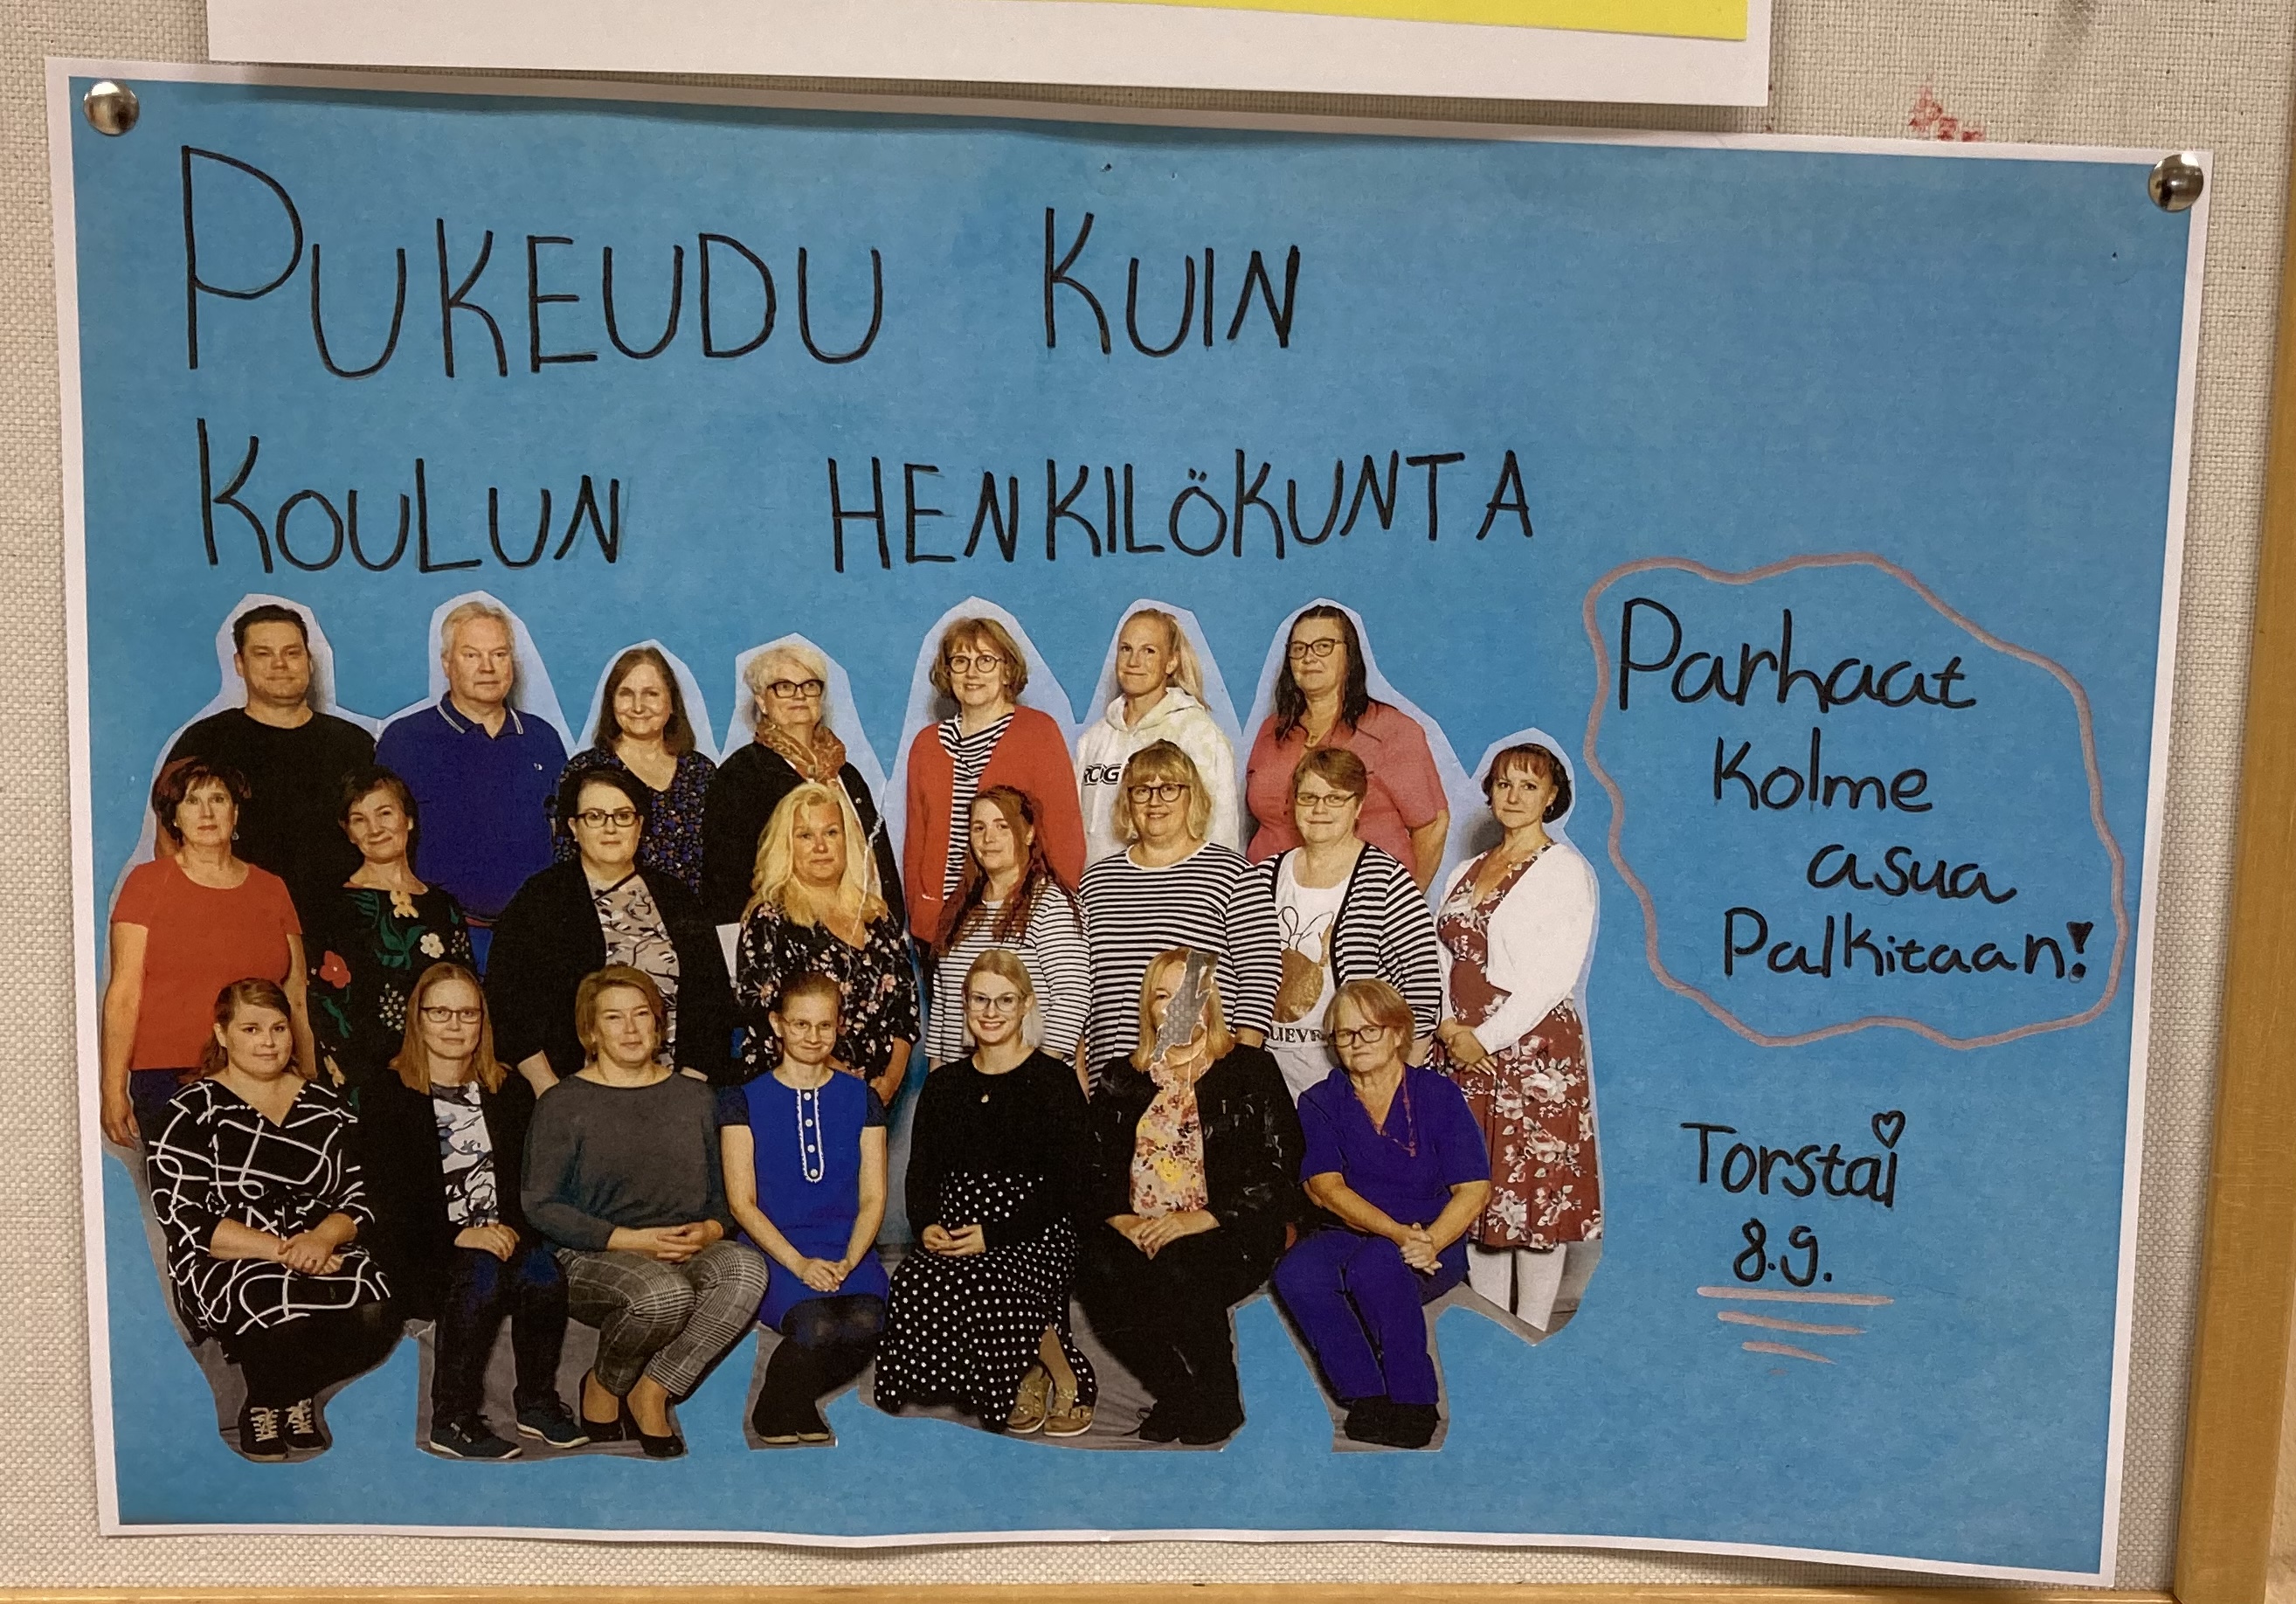 PUKEUDU KUIN
KOULUN HENKILÖKUNTA
Parhaat
Kolme
asua
Palkitaan!
Torstai
8.9.